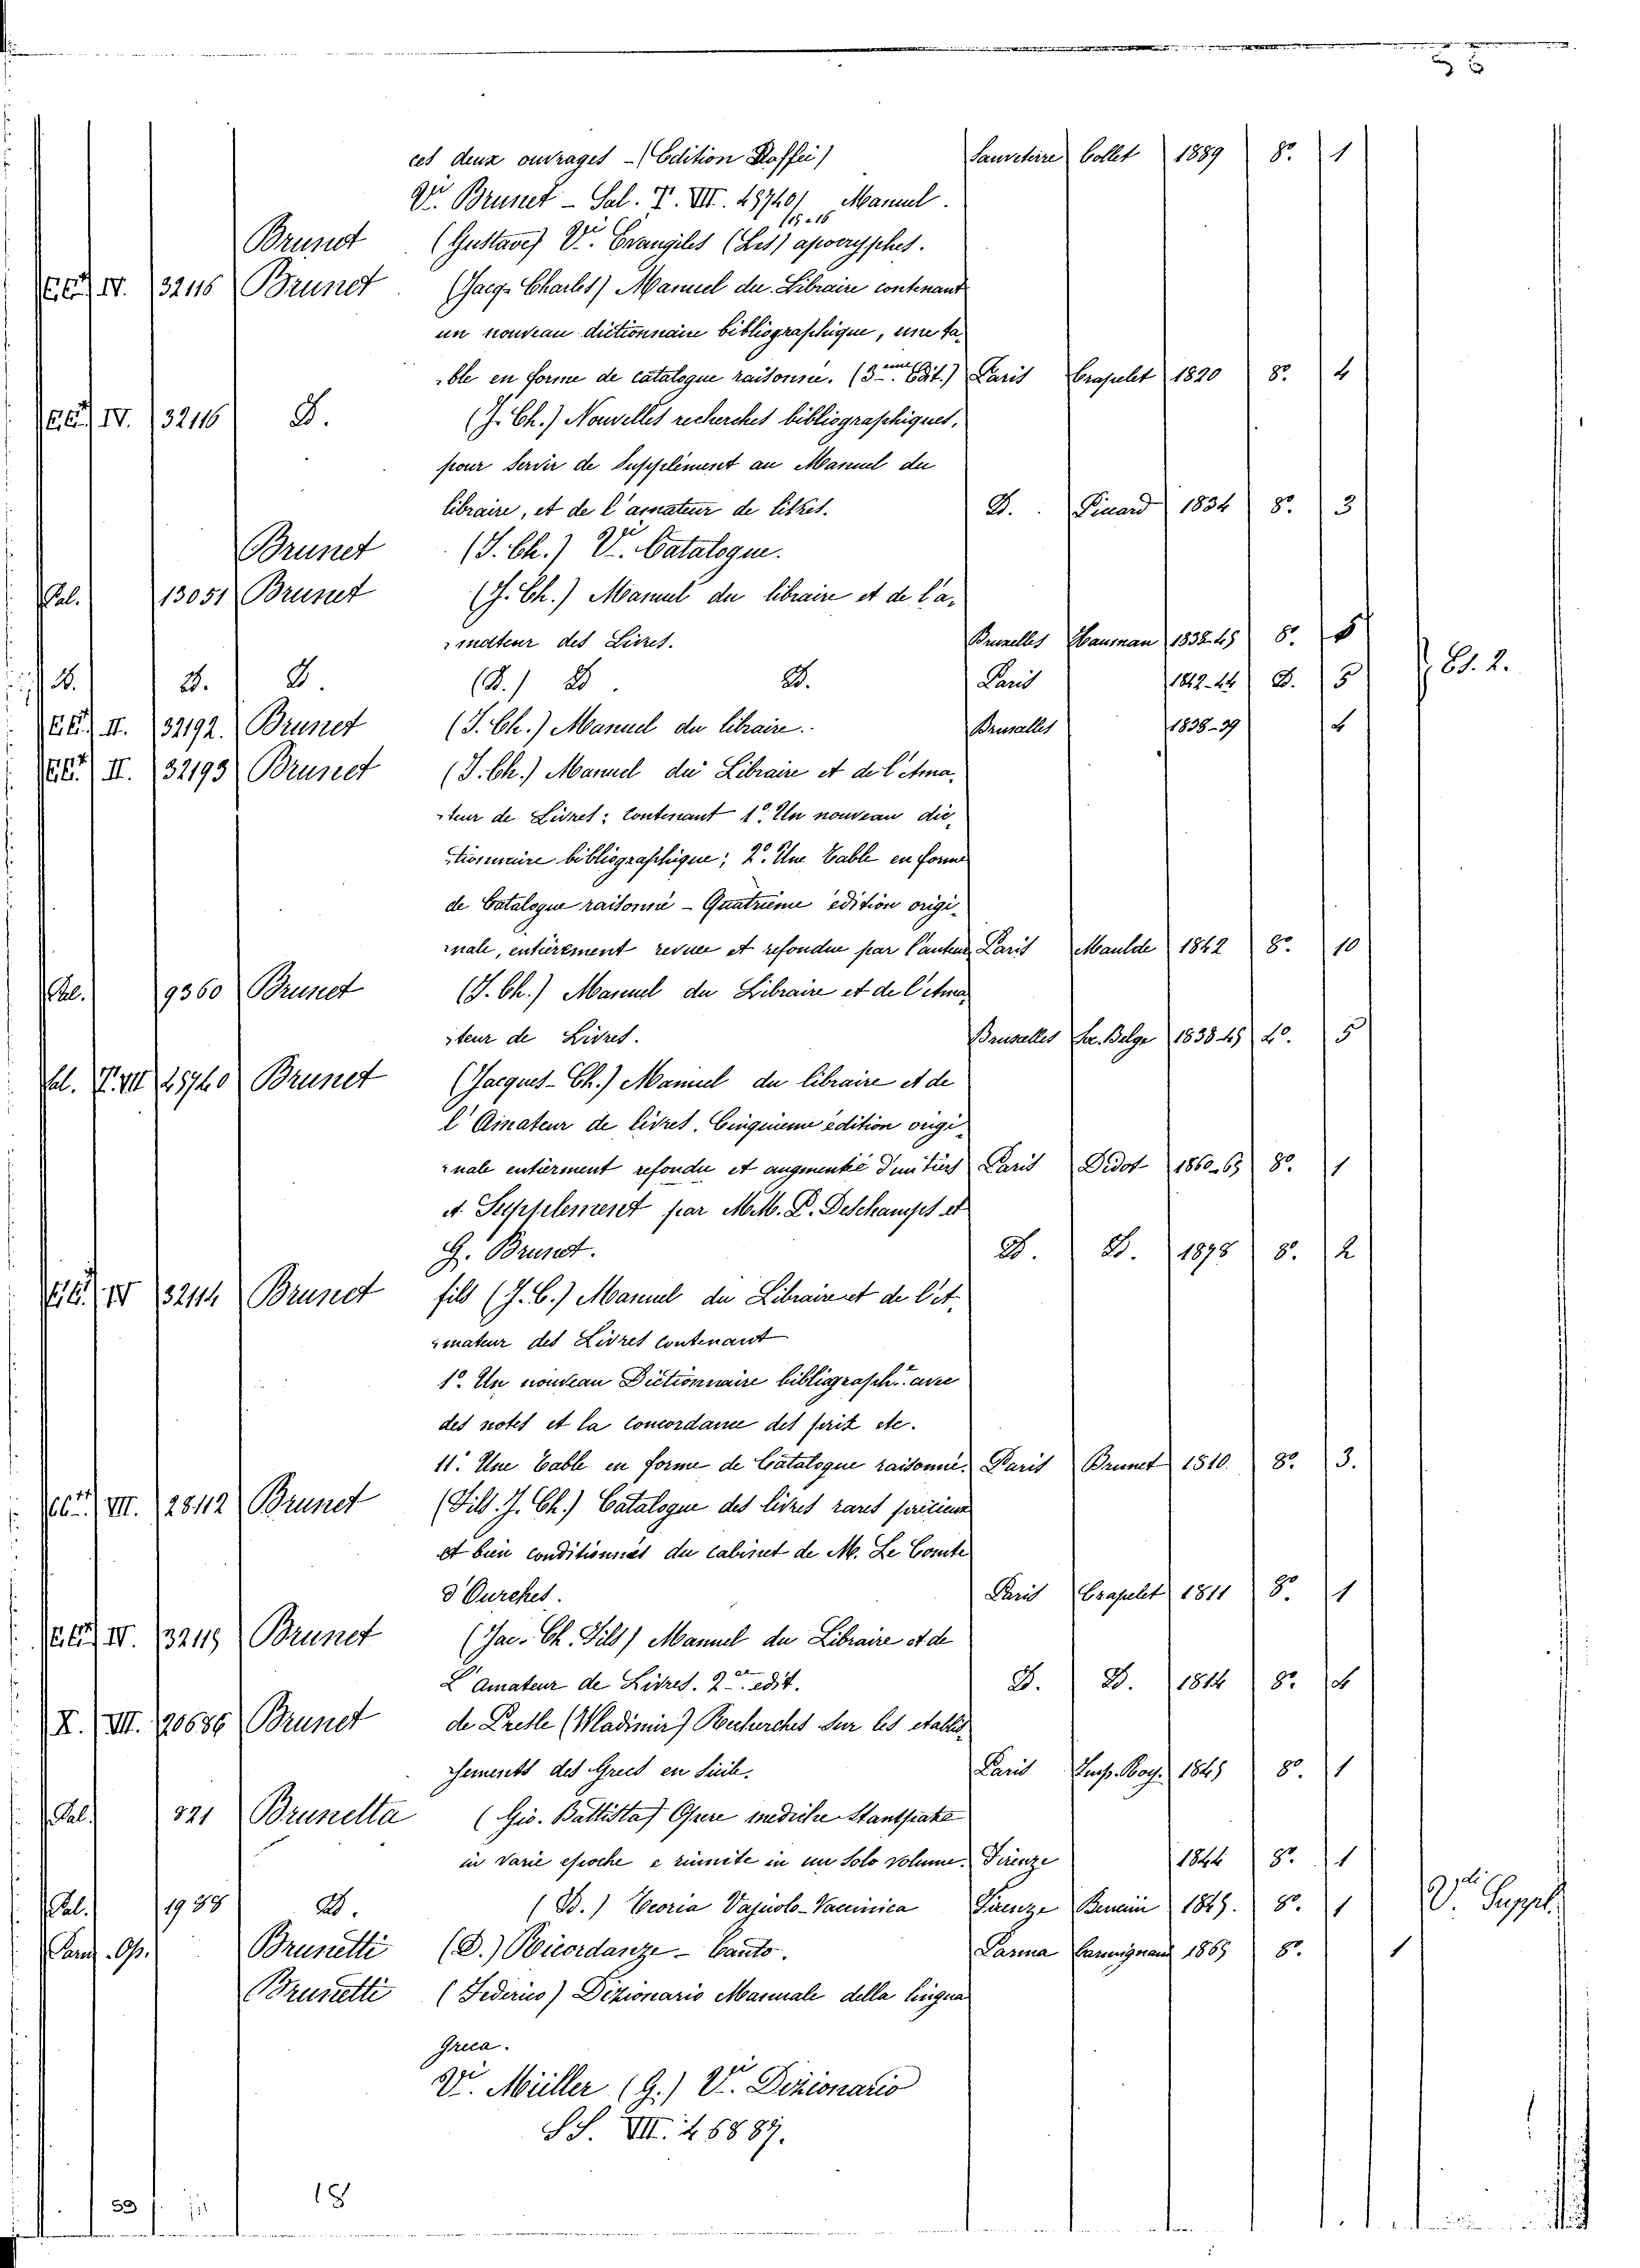 ces deux ouvrages - (Edition Raffei) Sauveterre Collet 1889 8º. 1
Vi. Brunet - Sal. T. VII. 25740/15-16 Manuel.
Brunet (Gustave) Vi. Evangiles (Les) apocryphes.
IV. 32116 Brunet (Jacq. Charles) Manuel du Libraire contenant
un nouveau dictionnaire bibliographique, une ta-
ble en forme de catalogue raisonné. (3eme Edit.) Paris Crapelet 1820 8º. 4
IV. 32116 D. (J. Ch.) Nouvelles recherches bibliographiques,
pour servir de Supplément au Manuel du
libraire, et de l'amateur de livres. D. Pinard 1834 8º. 3
Brunet (J. Ch.) Vi. Catalogue.
Pal. 13051 Brunet (J. Ch.) Manuel du libraire et de l'a-
mateur des Livres. Bruxelles Hauman 1838-45 8º. 5
D. D. D. (D.) D. D. Paris 1842-44 D. 5 Es. 2.
II. 32192. Brunet (J. Ch.) Manuel du libraire. Bruxelles 1838-39 4
II. 32193 Brunet (J. Ch.) Manuel du Libraire et de l'Ama-
teur de Livres: contenant 1º. Un nouveau dic-
tionnaire bibliographique; 2º. Une Table en forme
de Catalogue raisonné - Quatrième édition origi-
nale, entièrement revue et refondue par l'auteur Paris Maulde 1842 8º. 10
Pal. 9360 Brunet (J. Ch.) Manuel du Libraire et de l'Ama-
teur de Livres. Bruxelles Soc. Belge 1838-45 4º. 5
Sal. T. VII 25740 Brunet (Jacques-Ch.) Manuel du libraire et de
l'Amateur de livres. Cinquieme édition origi-
nale entièrment refondu et augmenté d'un tiers Paris Didot 1860-65 8º. 1
et Supplement par M.M. P. Deschamps et
G. Brunet. D. D. 1878 8º. 2
IV 32114 Brunet fils (J. C.) Manuel du Libraire et de l'A-
mateur des Livres contenant
1º. Un nouveau Dictionnaire bibliograph. avec
des notes et la concordance des prix etc.
11º. Une Table en forme de Catalogue raisonné. Paris Brunet 1810. 8º. 3.
VII. 28112 Brunet (Fils J. Ch.) Catalogue des livres rares précieux
et bien conditionnés du cabinet de M. Le Comte
d'Ourches. Paris Crapelet 1811 8º. 1
IV. 32119 Brunet (Jac. Ch. Fils) Manuel du Libraire et de
L'Amateur de Livres. 2e. edit. D. D. 1814 8º. 4
X. VII. 20686 Brunet de Presle (Wladimir) Recherches sur les etablis-
sements des Grecs en Sicile. Paris Imp. Roy. 1845 8º. 1
Pal. 821 Brunelta (Gio. Battista) Opere mediche Stampate
in varie epoche e riunite in un solo volume. Firenze 1844 8º. 1
Pal. 1988 D. (D.) Teoria Vajuolo-Vaccinica Firenze Bencini 1849. 8º. 1 Vdi Suppl.
Parm. Op. Brunetti (D.) Ricordanze - Canto. Parma Carmignani 1865 8º. 1
Brunetti (Federico) Dizionario Manuale della lingua
Greca.
Vi. Müller (G.) Vi. Dizionario
SS. VII. 46887.
53 18